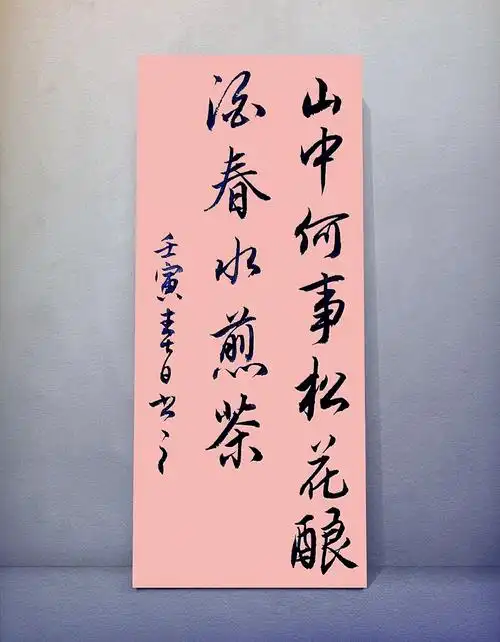 山中何事松花酿
酒春水煎茶
壬寅春日书之